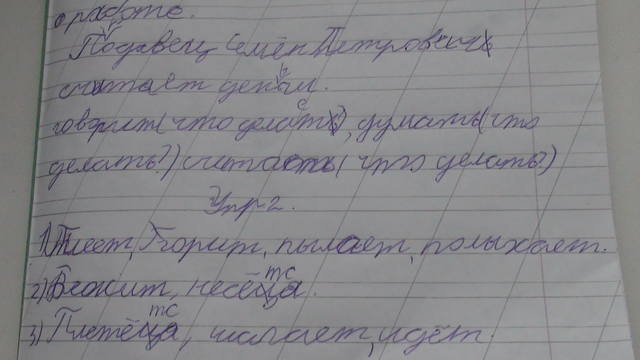 о работе.
Подавец Семён Петрович
считает деньги.
говорит (что делать), думать (что
делать?) считаеть (что делать?)
Упр 2.
1) Тлеет, Горит, пылает, полыхает.
2) Бежит, несётся.
3) Плетётся, шагает, идёт.